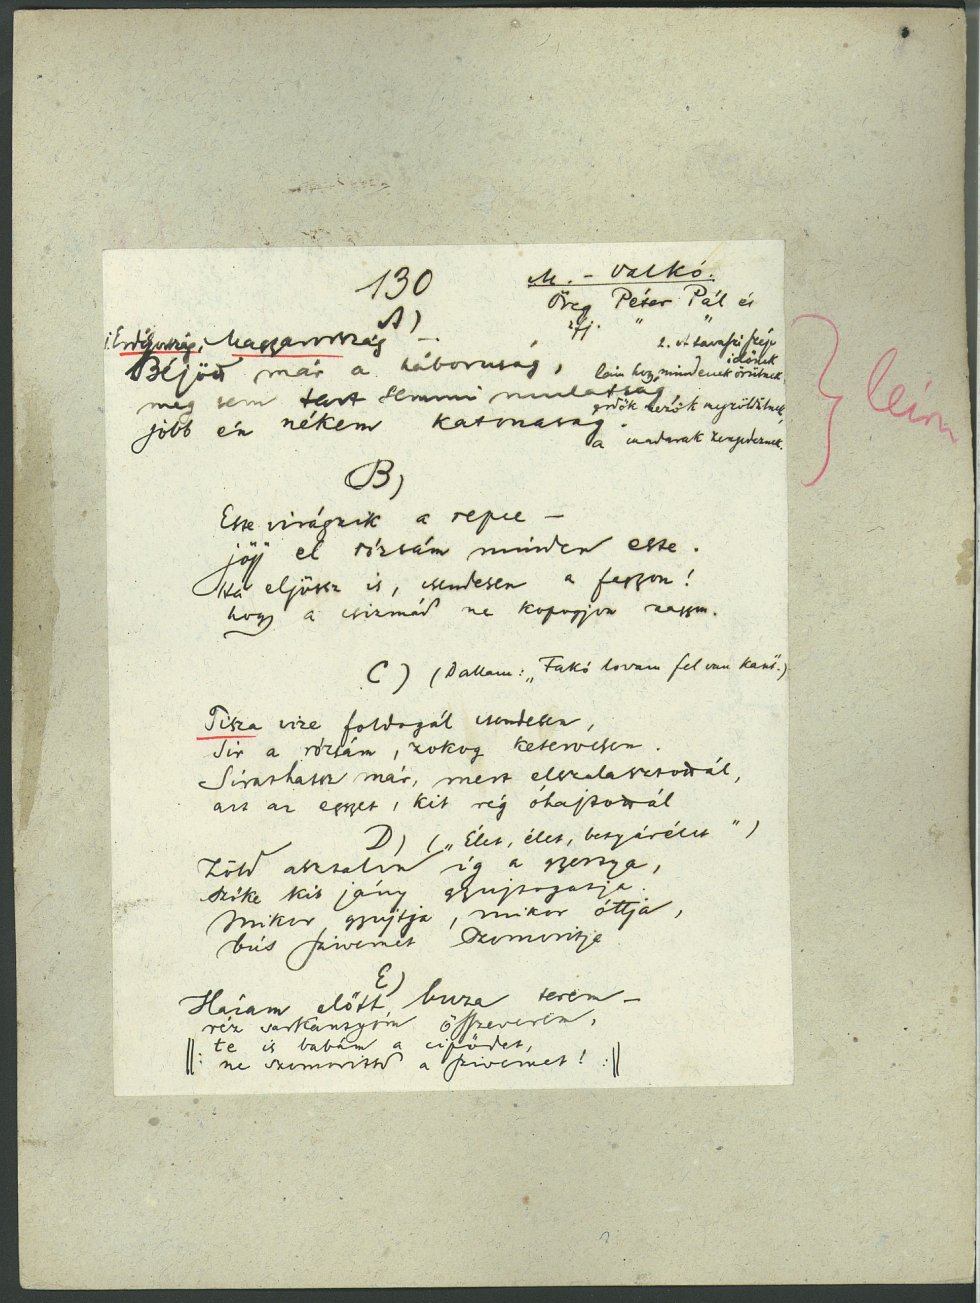 130
M. - Valkó.
Öreg Péter Pál és
ifj. " "
A)
1. Erdélyország, Magyarország –
Béjött már a háboruság,
meg sem tart semmi mulatság,
jobb én nékem katonaság.
2. A tavaszi szép
időnek
mindenek örülnek,
erdők mezők megzöldülnek,
a madarak zengedeznek.
leírni
B)
Este virágzik a repce –
jőjj el rózsám minden este.
Ha eljössz is, csendesen a faggyon!
hogy a csizmád ne kopogjon naggyon.
C) (Dallam: „Fakó lovam fel van kant".)
Tisza vize foldogál csendesen,
Sír a rózsám, zokog keservesen.
Sirathassz már, mert elszalasztottál,
azt az egyet, kit rég óhajtottál
D) („Élet, élet, betyárélet")
Zöld asztalon íg a gyertya,
szőke kis jány gyujtogatja.
Mikor gyujtja, mikor óttja,
bús szivemet szomoritja
E)
Házam előtt buza terem –
réz sarkantyúm összeverem,
‖: te is babám a cipődet,
ne szomorittsd a szivemet! :‖